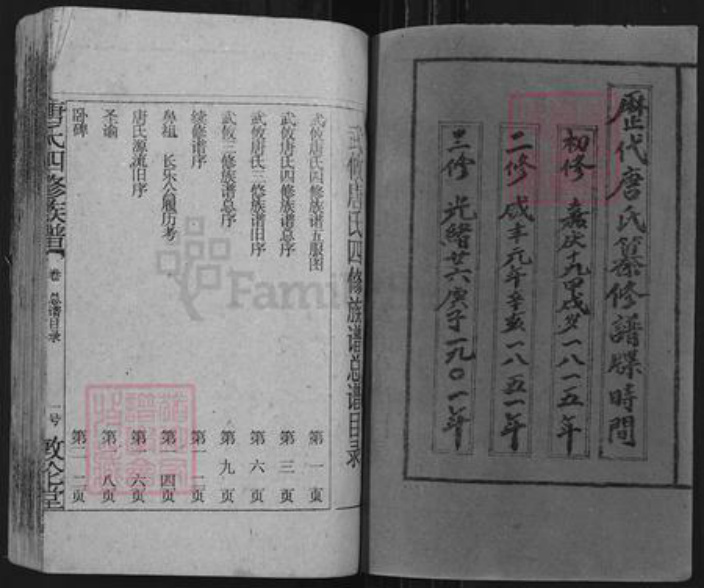 歷代唐氏纂修譜牒時間
初修 嘉庆十九甲戌岁一八一五年
二修 咸丰元年辛亥一八五一年
三修 光緒廿六庚子一九〇一年
武攸唐氏四修族谱总谱目录
武攸唐氏四修族谱五服图 第一页
武攸唐氏四修族谱总序 第三页
武攸唐氏三修族谱旧序 第六页
武攸三修族谱总序 第九页
续修谱序 第一二页
鼻祖 长乐公履历考 第一四页
唐氏源流旧序 第一六页
圣谕 第一八页
卧碑 第二二页
唐氏四修族譜 卷 总谱目录 一号 敦伦堂
Family